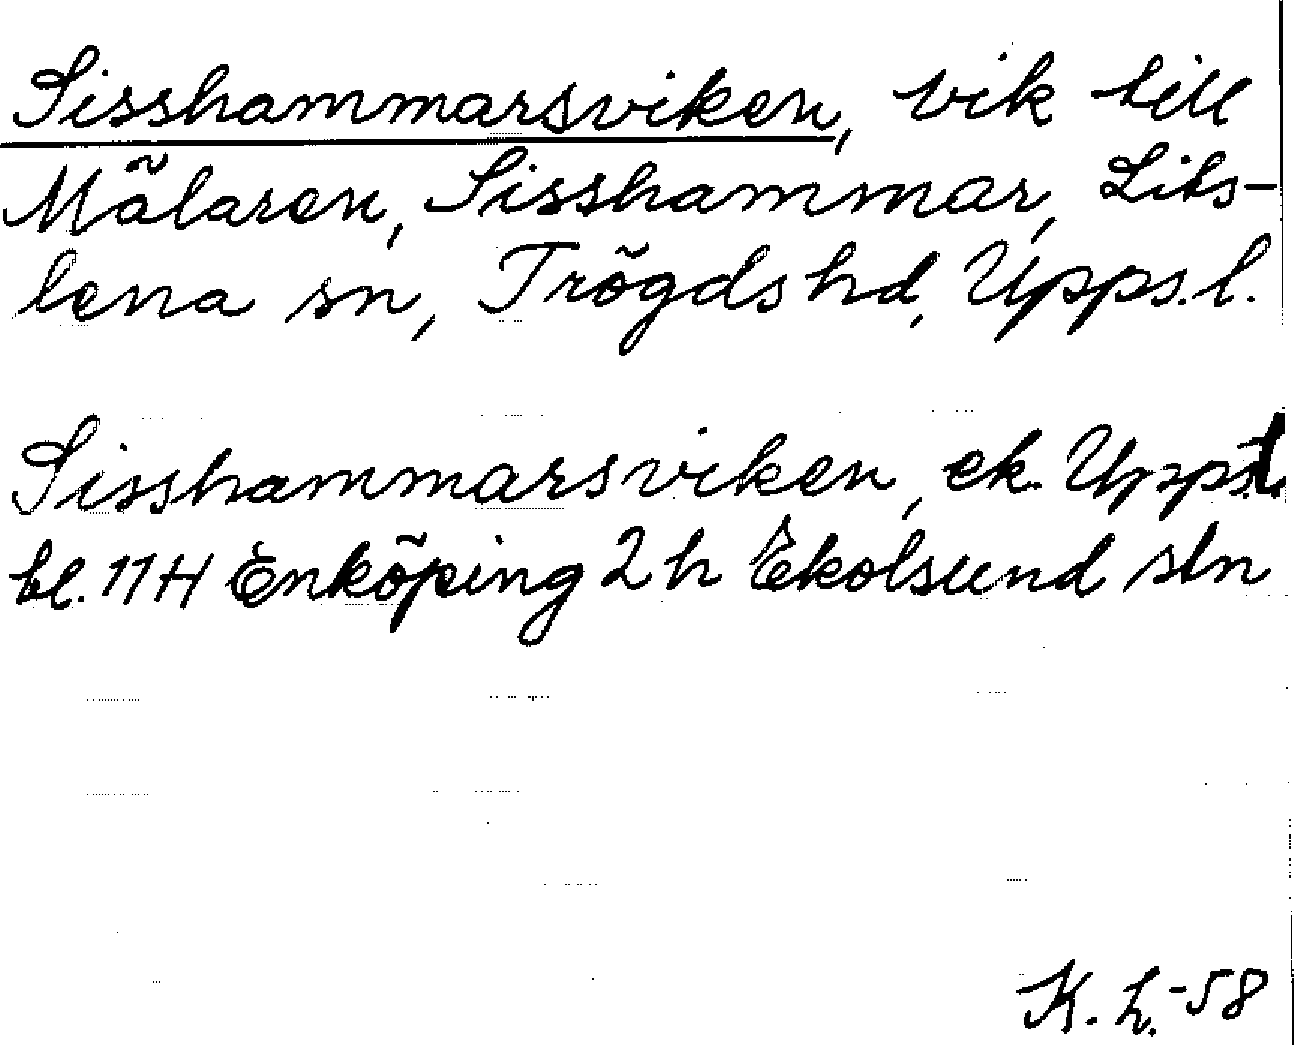 Sisshammarsviken, vik till
Mälaren, Sisshammar, Lits-
lena sn, Trögds hd, Upps.l.
Sisshammarsviken, ek. Upps.l.
bl. 11H Enköping 2 h Ekolsund stn
K. L. -58